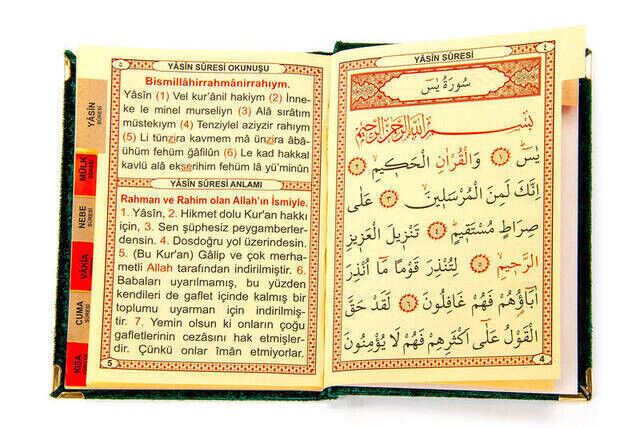 ٤
YÂSÎN SÛRESİ
سُورَةُ يٰسٓ
بِسْمِ اللّٰهِ الرَّحْمٰنِ الرَّحِيمِ
يٰسٓ ﴿١﴾ وَالْقُرْاٰنِ الْحَكِيمِ ﴿٢﴾
اِنَّكَ لَمِنَ الْمُرْسَلِينَ ﴿٣﴾ عَلٰى
صِرَاطٍ مُسْتَقِيمٍ ﴿٤﴾ تَنْزِيلَ الْعَزِيزِ
الرَّحِيمِ ﴿٥﴾ لِتُنْذِرَ قَوْمًا مَٓا اُنْذِرَ
اٰبَٓاؤُهُمْ فَهُمْ غَافِلُونَ ﴿٦﴾ لَقَدْ حَقَّ
الْقَوْلُ عَلٰٓى اَكْثَرِهِمْ فَهُمْ لَا يُؤْمِنُونَ
4
٥
YÂSÎN SÛRESİ OKUNUŞU
Bismillâhirrahmânirrahıym.
Yâsîn (1) Vel kur'ânil hakiym (2) İnne-
ke le minel murseliyn (3) Alâ sırâtım
müstekıym (4) Tenziylel aziyzir rahıym
(5) Li tünzira kavmem mâ ünzira âbâ-
ühüm fehüm ğâfilûn (6) Le kad hakkal
kavlü alâ ekserihim fehüm lâ yü'minûn
YÂSÎN SÛRESİ ANLAMI
Rahman ve Rahim olan Allah'ın İsmiyle.
1. Yâsîn, 2. Hikmet dolu Kur'an hakkı
için, 3. Sen şüphesiz peygamberler-
densin. 4. Dosdoğru yol üzerindesin.
5. (Bu Kur'an) Gâlip ve çok merha-
metli Allah tarafından indirilmiştir. 6.
Babaları uyarılmamış, bu yüzden
kendileri de gaflet içinde kalmış bir
toplumu uyarman için indirilmiş-
tir. 7. Yemin olsun ki onların çoğu
gafletlerinin cezasını hak etmişler-
dir. Çünkü onlar îmân etmiyorlar.
5
YÂSİN
SÛRESİ
MÜLK
SÛRESİ
NEBE
SÛRESİ
VÂKIA
CUMA
SÛRESİ
KISA